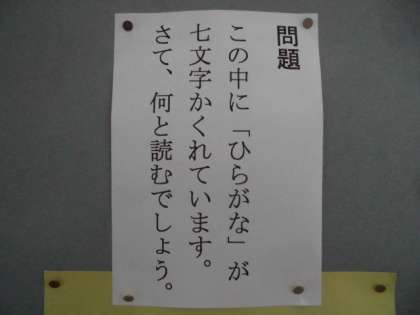 問題
この中に「ひらがな」が
七文字かくれています。
さて、何と読むでしょう。